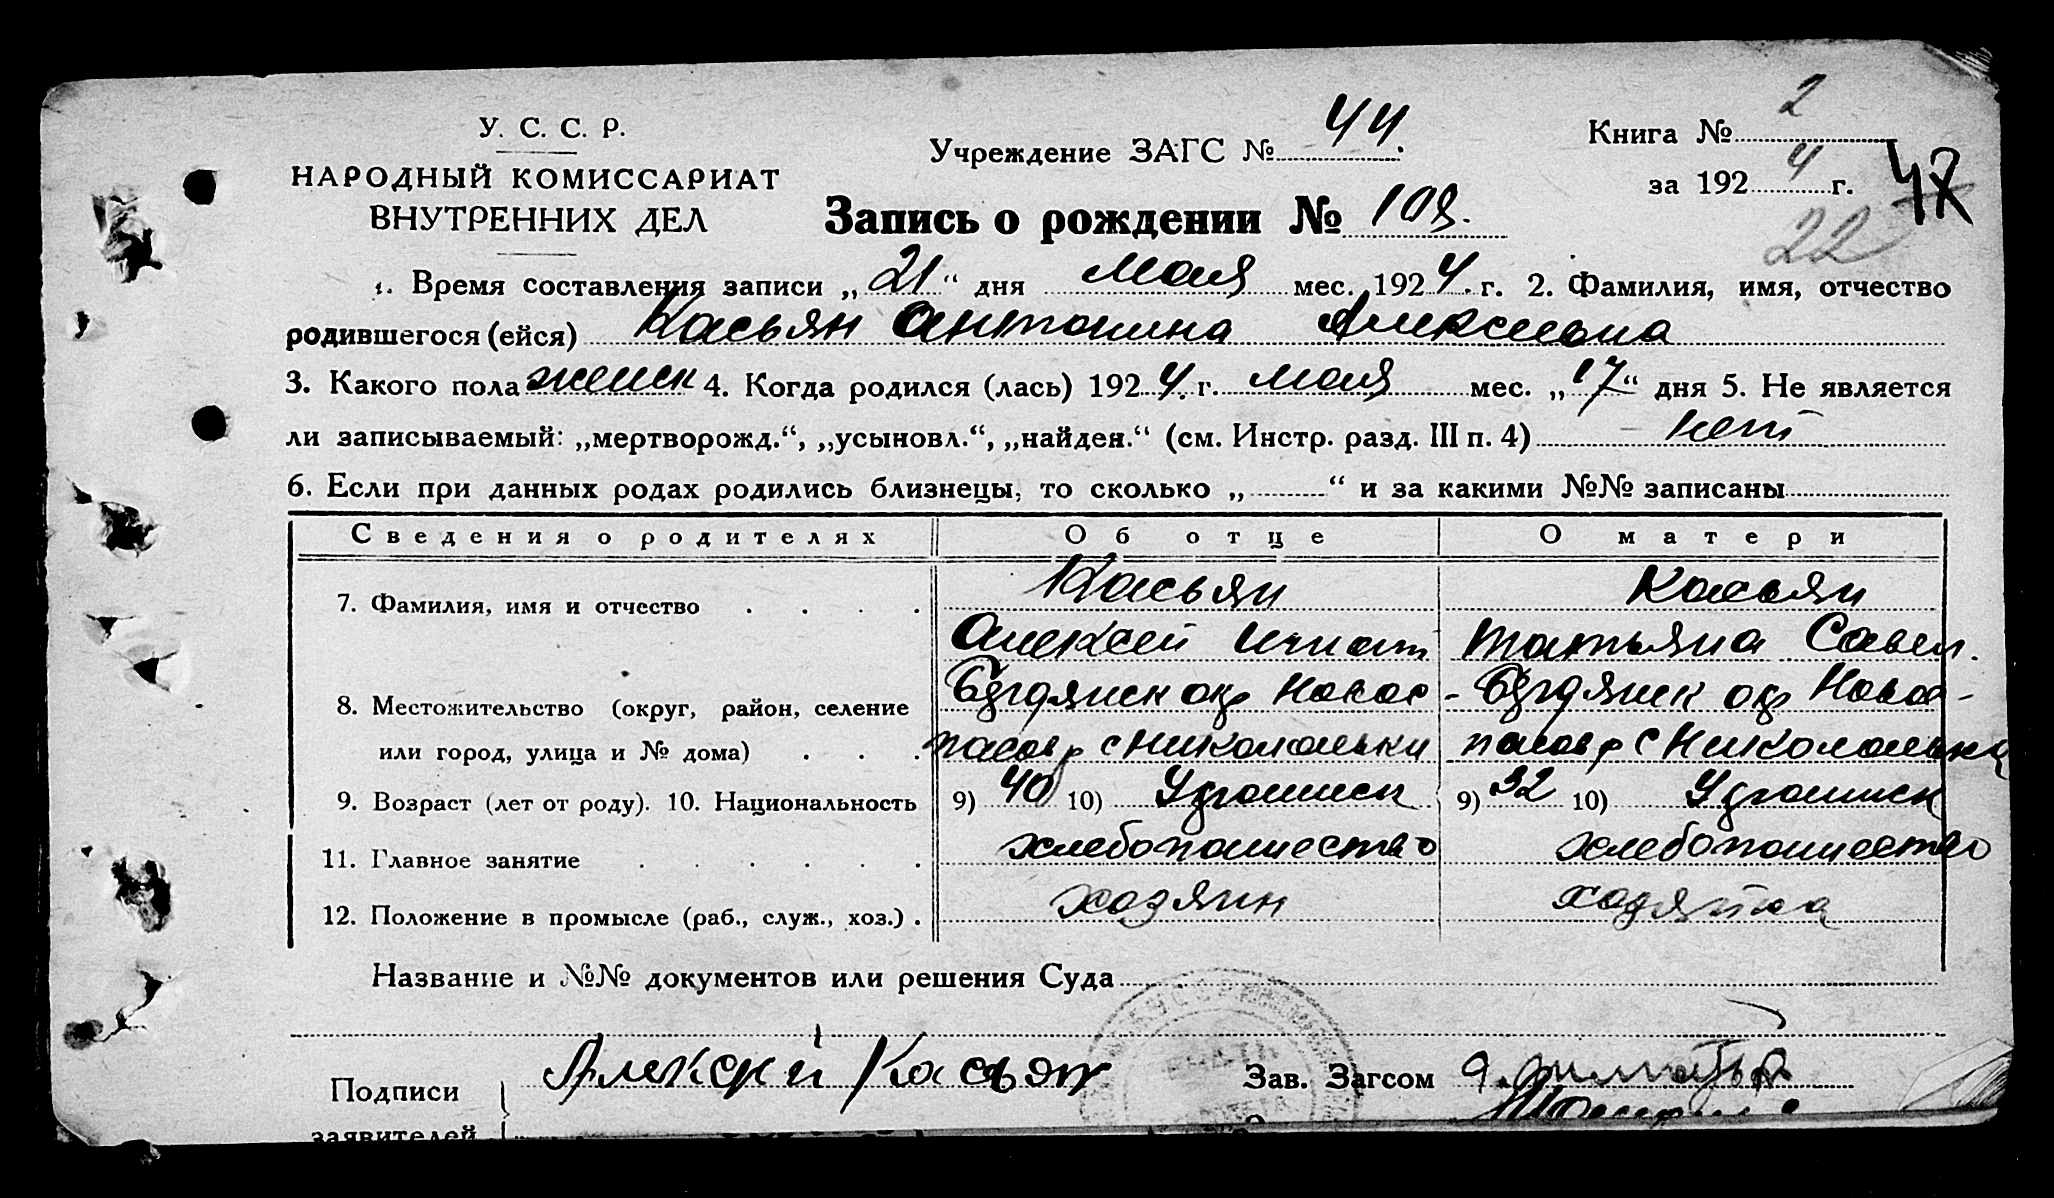 У. С. С. Р.
НАРОДНЫЙ КОМИССАРИАТ
ВНУТРЕННИХ ДЕЛ
Учреждение ЗАГС № 44.
Книга № 2
за 1924 г.
47
22
Запись о рождении № 109.
1. Время составления записи „21“ дня мая мес. 1924 г. 2. Фамилия, имя, отчество
родившегося (ейся) Касьян Антонина Алексеевна
3. Какого пола женск 4. Когда родился (лась) 1924 г. мая мес. „17“ дня 5. Не является
ли записываемый: „мертворожд.“, „усыновл.“, „найден.“ (см. Инстр. разд. III п. 4) нет
6. Если при данных родах родились близнецы, то сколько „ “ и за какими №№ записаны
Сведения о родителях Об отце О матери
7. Фамилия, имя и отчество Касьян Касьян
Алексей Игнат Татьяна Савел.
8. Местожительство (округ, район, селение Бердянск окр Новос- Бердянск окр Новос-
или город, улица и № дома) пасов р с Николаевки пасов р с Николаевка
9. Возраст (лет от роду). 10. Национальность 9) 40 10) Украинск 9) 32 10) Украинск
11. Главное занятие хлебопашество хлебопашество
12. Положение в промысле (раб., служ., хоз.) хозяин хозяйка
Название и №№ документов или решения Суда
Подписи Алексей Касьян Зав. Загсом
заявителей